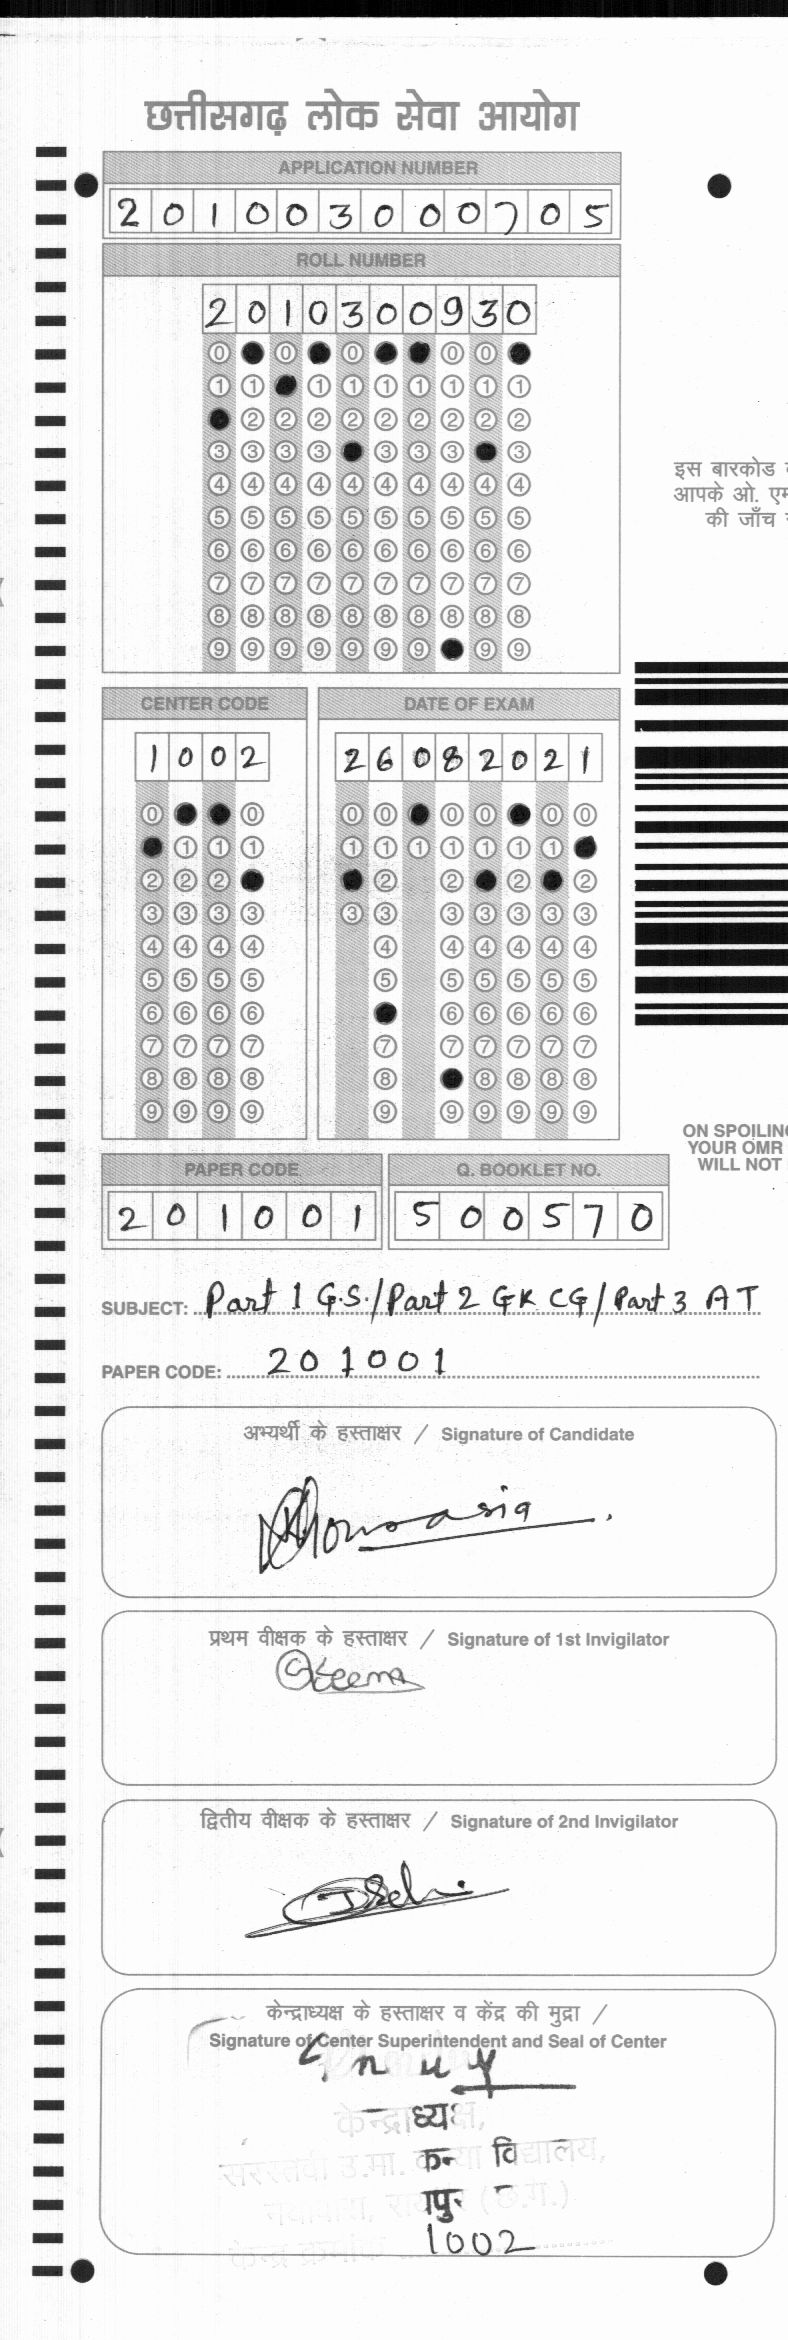 छत्तीसगढ़ लोक सेवा आयोग
APPLICATION NUMBER
2 0 1 0 0 3 0 0 0 7 0 5
ROLL NUMBER
2 0 1 0 3 0 0 9 3 0
0 0 0 0 0
1 1 1 1 1 1 1 1 1
2 2 2 2 2 2 2 2 2
3 3 3 3 3 3 3 3
4 4 4 4 4 4 4 4 4 4
5 5 5 5 5 5 5 5 5 5
6 6 6 6 6 6 6 6 6 6
7 7 7 7 7 7 7 7 7 7
8 8 8 8 8 8 8 8 8 8
9 9 9 9 9 9 9 9 9
इस बारकोड
आपके ओ. एम
की जाँच
CENTER CODE
1 0 0 2
0 0
1 1 1
2 2 2
3 3 3 3
4 4 4 4
5 5 5 5
6 6 6 6
7 7 7 7
8 8 8 8
9 9 9 9
DATE OF EXAM
2 6 0 8 2 0 2 1
0 0 0 0 0 0
1 1 1 1 1 1 1
2 2 2 2
3 3 3 3 3 3 3
4 4 4 4 4 4
5 5 5 5 5 5
6 6 6 6 6
7 7 7 7 7 7
8 8 8 8 8
9 9 9 9 9 9
ON SPOILING
YOUR OMR
WILL NOT
PAPER CODE
2 0 1 0 0 1
Q. BOOKLET NO.
5 0 0 5 7 0
SUBJECT: Part 1 G.S./Part 2 GK CG/Part 3 AT
PAPER CODE: 201001
अभ्यर्थी के हस्ताक्षर / Signature of Candidate
प्रथम वीक्षक के हस्ताक्षर / Signature of 1st Invigilator
द्वितीय वीक्षक के हस्ताक्षर / Signature of 2nd Invigilator
केन्द्राध्यक्ष के हस्ताक्षर व केंद्र की मुद्रा /
Signature of Center Superintendent and Seal of Center
केन्द्राध्यक्ष,
उ.मा. कन्या विद्यालय,
(छ.ग.)
केन्द्र क्रमांक 1002